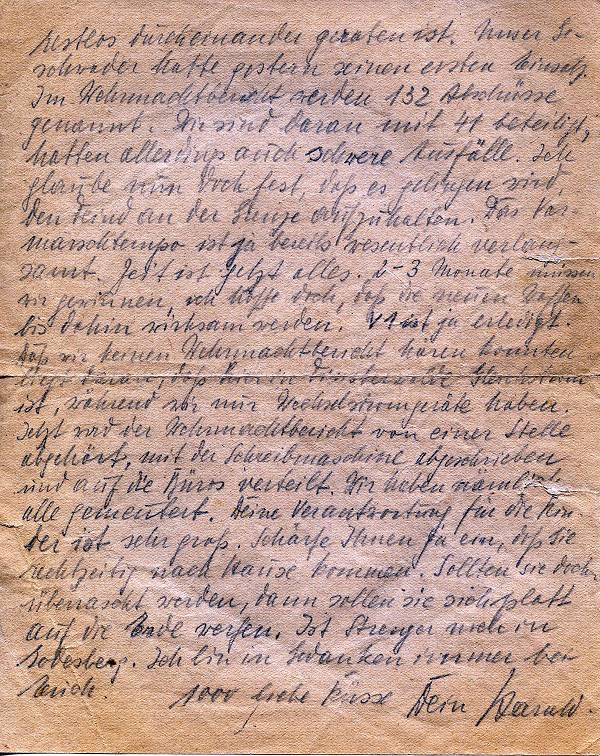 restlos durcheinander geraten ist. Unser Ge-
schwader hatte gestern seinen ersten Einsatz.
Im Wehrmachtbericht werden 132 Abschüsse
genannt. Wir sind daran mit 41 beteiligt,
hatten allerdings auch schwere Ausfälle. Ich
glaube nun doch fest, daß es gelingen wird,
den Feind an der Grenze aufzuhalten. Das Vor-
marschtempo ist ja bereits wesentlich verlang-
samt. Zeit ist jetzt alles. 2-3 Monate müssen
wir gewinnen, ich hoffe doch, daß die neuen Waffen
bis dahin wirksam werden. V1 ist ja erledigt.
Daß wir keinen Wehrmachtbericht hören konnten
liegt daran, daß hier in Finsterwalde Gleichstrom
ist, während wir nur Wechselstromgeräte haben.
Jetzt wird der Wehrmachtbericht von einer Stelle
abgehört, mit der Schreibmaschine abgeschrieben
und auf die Büros verteilt. Wir haben nämlich
alle gemeutert. Deine Verantwortung für die Kin-
der ist sehr groß. Schärfe Ihnen ja ein, daß sie
rechtzeitig nach Hause kommen. Sollten sie doch
überrascht werden, dann sollen sie sich platt
auf die Erde werfen. Ist noch in
Godesberg. Ich bin in Gedanken immer bei
Euch! 1000 liebe Küsse Dein Harald.